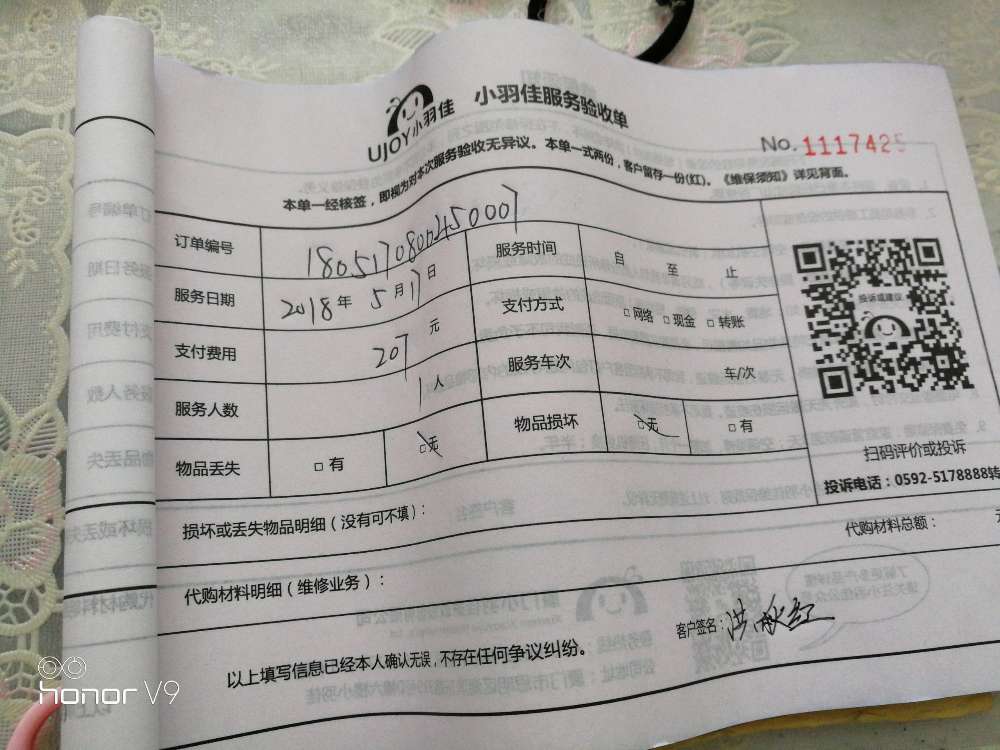 UJOY小羽佳 小羽佳服务验收单
No.1117425
本单一经核签，即视为对本次服务验收无异议。本单一式两份，客户留存一份(红)。《维保须知》详见背面。
订单编号 服务时间 自 至 止
服务日期 2018年5月17日 支付方式 □网络 □现金 □转账
支付费用 207元 服务车次 车/次
服务人数 1人 物品损坏 □无 □有
物品丢失 □有 □无
投诉或建议
扫码评价或投诉
投诉电话：0592-5178888转
损坏或丢失物品明细（没有可不填）：
代购材料总额：
代购材料明细（维修业务）：
客户签名：洪
以上填写信息已经本人确认无误，不存在任何争议纠纷。
honor V9